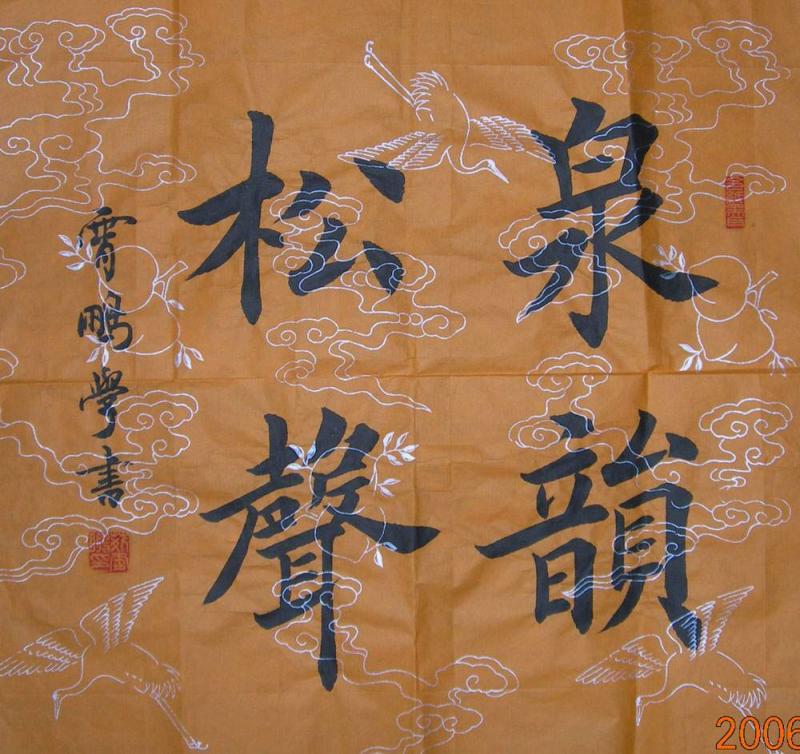 泉韻
松聲
霄鵬學書
2006